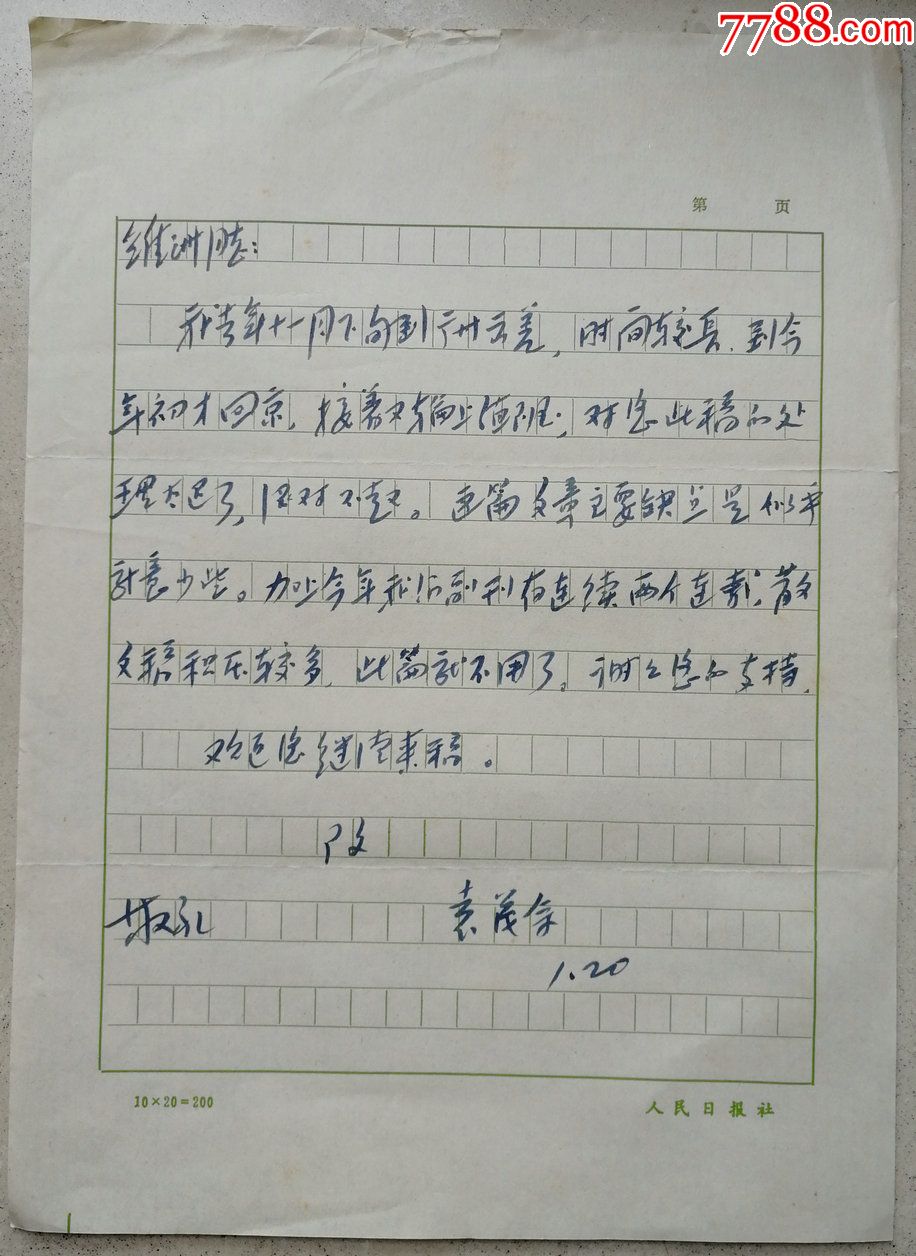 7788.com
第 页
维洲同志：
我去年十一月下旬到广州出差，时间较长，到今
年初才回京，接着又轮上值班，对您此稿的处
理太迟了，很对不起。这篇文章主要缺点是似乎
新意少些。加上今年我们副刊有连续两个连载，散文
文稿积压较多，此篇就不用了。谢谢您的支持，
欢迎您继续来稿。
致
敬礼 袁茂余
1.20
10×20=200
人民日报社